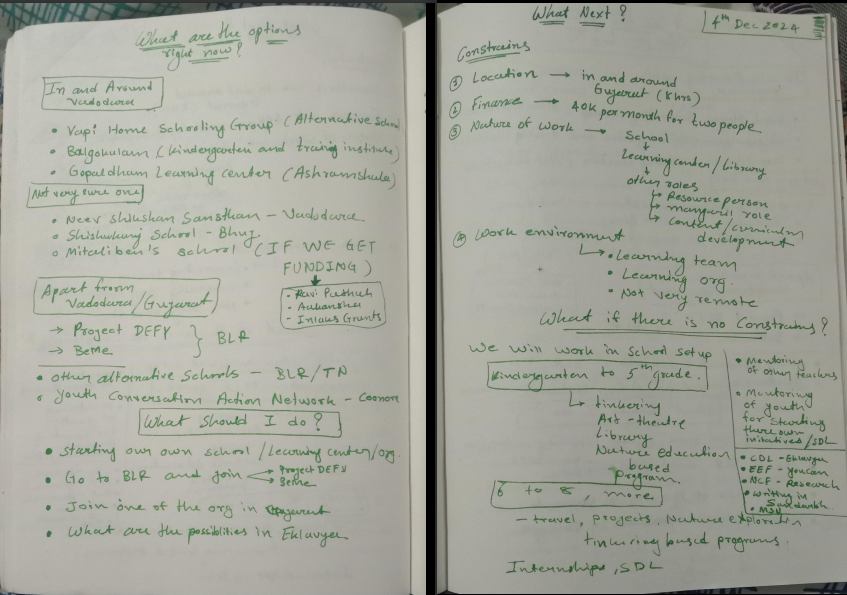 What are the options
right now?
In and Around
Vadodara
• Vapi Home Schooling Group (Alternative School
• Balgokulam (Kindergarten and training institute)
• Gopaldham Learning center (Ashramshala)
Not very sure one
• Neev Shikshan Sansthan - Vadodara
• Shishukunj School - Bhuj
• Mitaliben's school (IF WE GET
FUNDING)
• Ravi
•
• Inlaks Grants
Apart from
Vadodara/Gujarat
→ Project DEFY
→ Beme
BLR
• Other alternative schools - BLR/TN
• Youth Conversation Action Network - Coonoor
What Should I do?
• Starting our own school/Learning center/org.
• Go to BLR and join
→ Project DEFY
→ Beme
• Join one of the org in Gujarat
• What are the possiblities in Eklavya
What Next?
4th Dec 2024
Constrains
① Location → in and around
Gujarat (8hrs)
② Finance → 40K per month for two people
③ Nature of work → School
Learning center/Library
other roles
Resource person
role
Content/curriculum
development
④ Work environment
• Learning team
• Learning org.
• Not very remote
What if there is no Constrains?
We will work in School setup
Kindergarten to 5th grade.
tinkering
Art-theatre
Library
Nature education
based
program.
6 to 8, more
- travel, projects, Nature exploration
tinkering based programs.
Internships, SDL
• Mentoring
of other teachers
• Mentoring
of youth
for starting
there own
initiatives/SDL
• CDL - Eklavya
• EEF - youcan
• NCF - Research
• Writing in
Sandarbh
• MSU